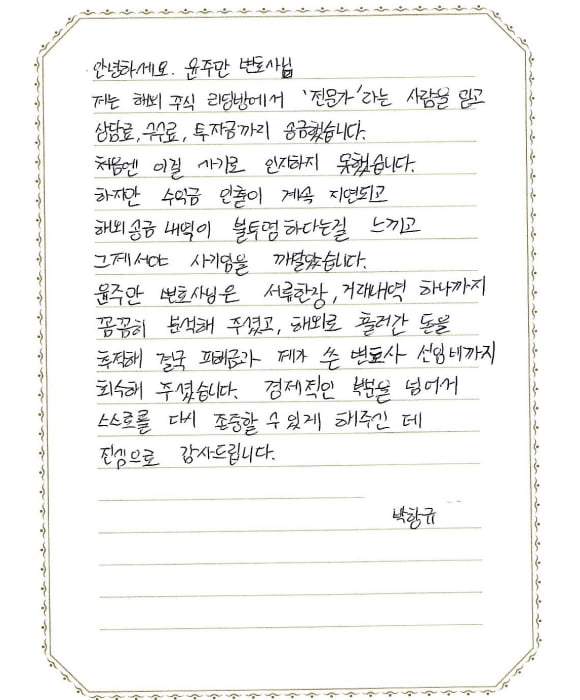 안녕하세요. 윤주만 변호사님
저는 해외 주식 리딩방에서 '전문가'라는 사람을 믿고
상담료, 수수료, 투자금까지 송금했습니다.
처음엔 이걸 사기로 인지하지 못했습니다.
하지만 수익금 인출이 계속 지연되고
해외송금 내역이 불투명하다는걸 느끼고
그제서야 사기임을 깨달았습니다.
윤주만 변호사님은 서류한장, 거래내역 하나까지
꼼꼼히 분석해 주셨고, 해외로 흘러간 돈을
추적해 결국 피해금과 제가 쓴 변호사 선임비까지
회수해 주셨습니다. 경제적인 부분을 넘어서
스스로를 다시 존중할 수 있게 해주신 데
진심으로 감사드립니다.
박항규